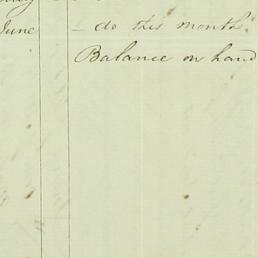 June - do this month.
Balance on hand